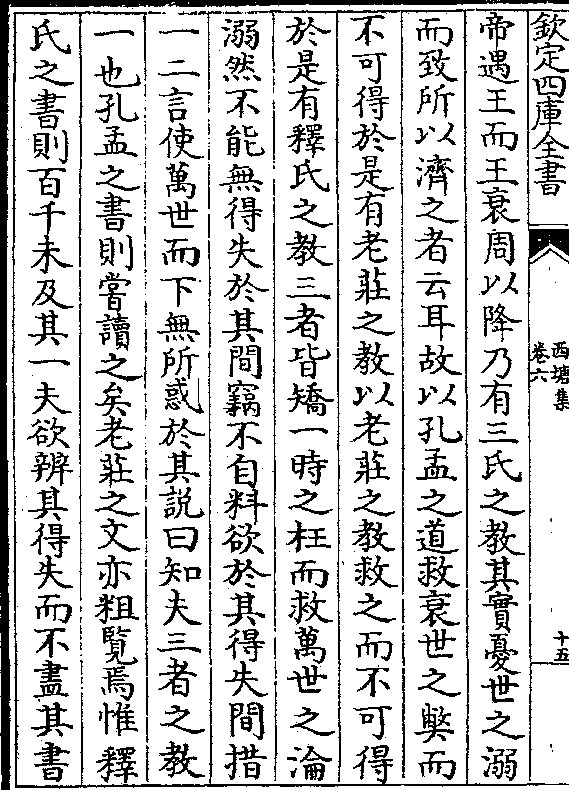 欽定四庫全書
西塘集
卷六
十五
帝遇王而王衰周以降乃有三氏之教其實憂世之溺
而致所以濟之者云耳故以孔孟之道救衰世之弊而
不可得於是有老莊之教以老莊之教救之而不可得
於是有釋氏之教三者皆矯一時之枉而救萬世之淪
溺然不能無得失於其間竊不自料欲於其得失間措
一二言使萬世而下無所惑於其説曰知夫三者之教
一也孔孟之書則嘗讀之矣老莊之文亦粗覽焉惟釋
氏之書則百千未及其一夫欲辨其得失而不盡其書